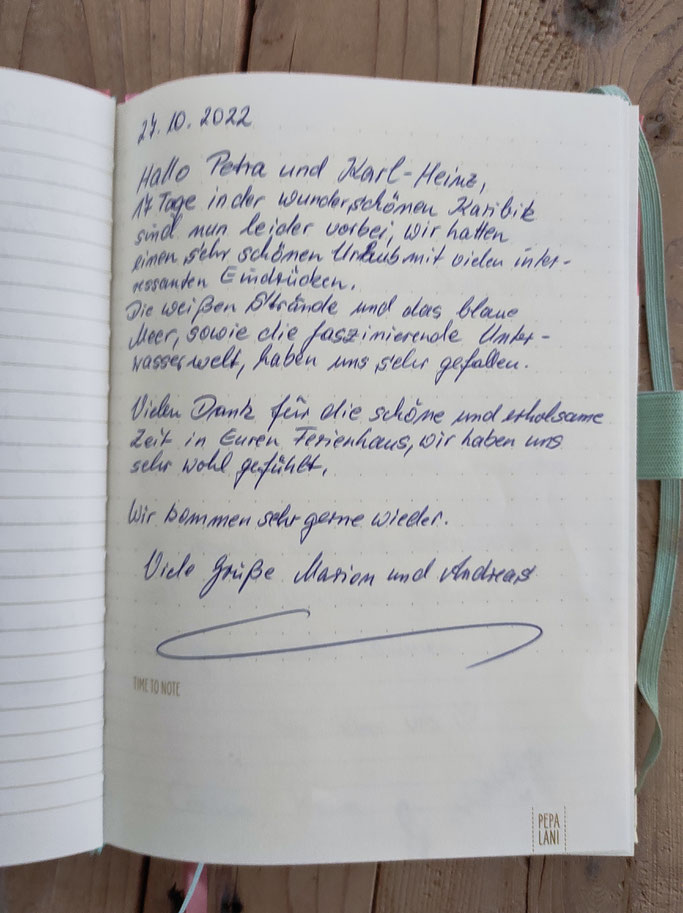 27.10.2022
Hallo Petra und Karl-Heinz,
17 Tage in der wunderschönen Karibik
sind nun leider vorbei, wir hatten
einen sehr schönen Urlaub mit vielen inter-
ressanten Eindrücken.
Die weißen Strände und das blaue
Meer, sowie die faszinierende Unter-
wasserwelt, haben uns sehr gefallen.
Vielen Dank für die schöne und erholsame
Zeit in Euren Ferienhaus, wir haben uns
sehr wohl gefühlt.
Wir kommen sehr gerne wieder.
Viele Grüße Marion und Andreas
TIME TO NOTE
PEPA
LANI